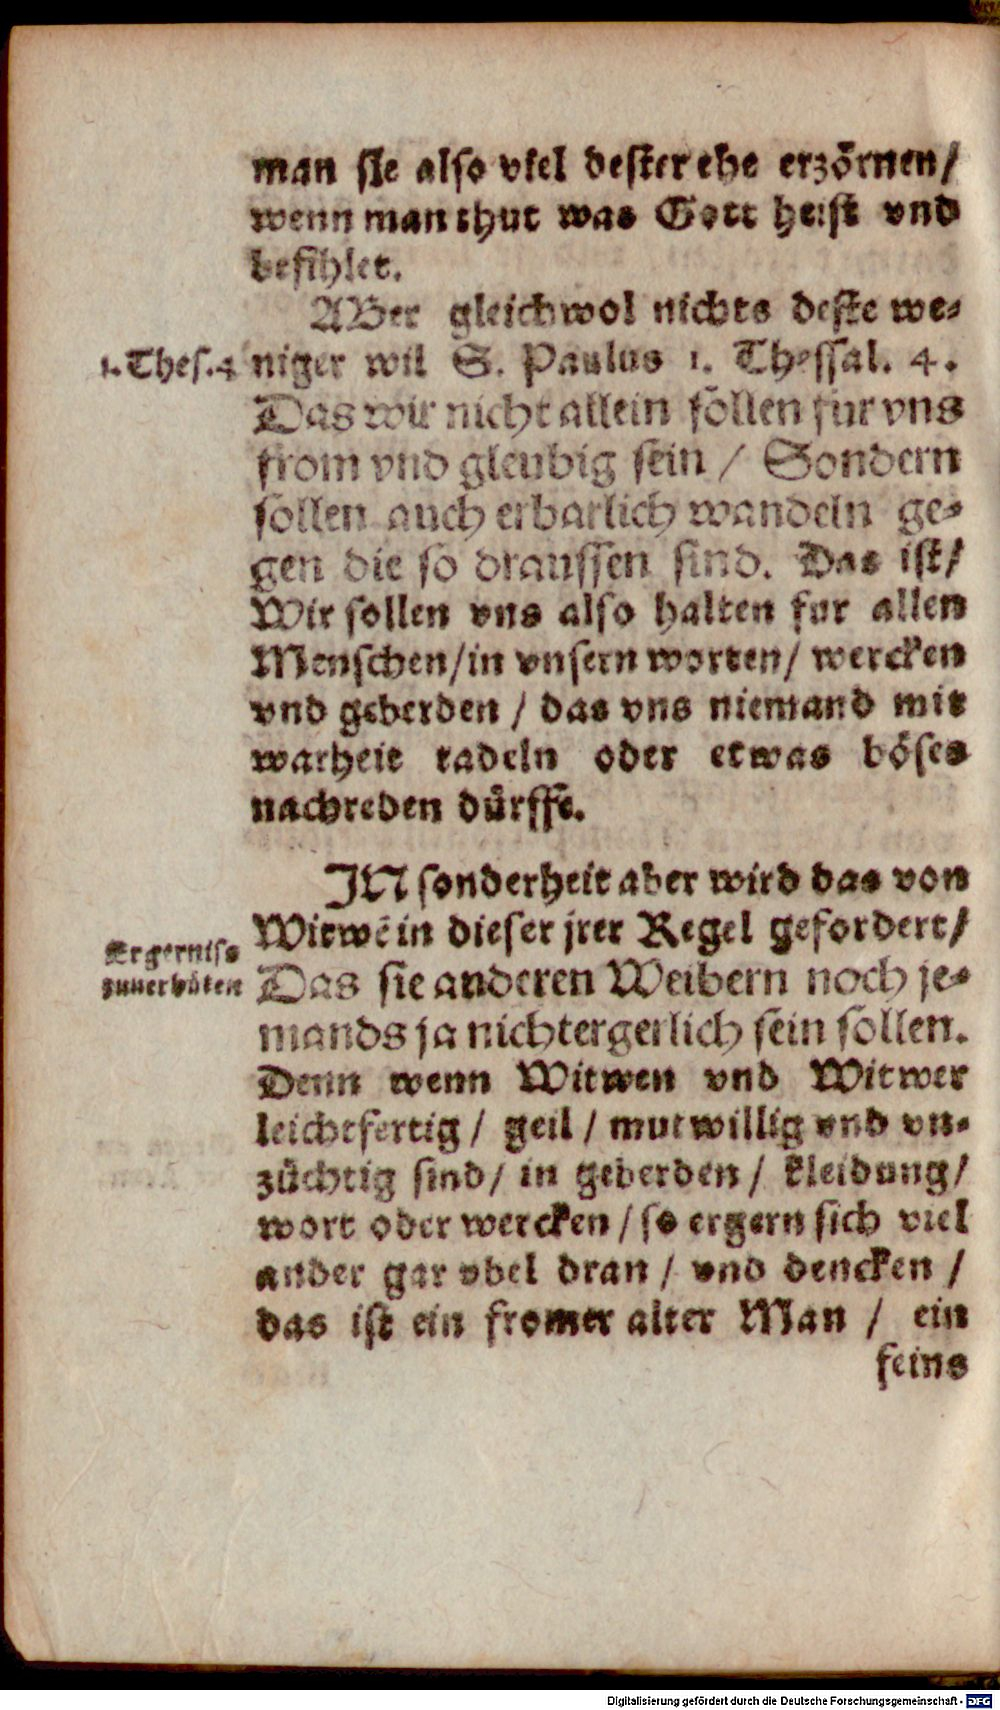 man sie also viel dester ehe erzörnen/
wenn man thut was Gott heist vnd
befihlet.
ABer gleichwol nichts deste we-
1. Thes. 4
niger wil S. Paulus 1. Thessal. 4.
Das wir nicht allein sollen für vns
from vnd gleubig sein / Sondern
sollen auch erbarlich wandeln ge-
gen die so draussen sind. Das ist/
Wir sollen vns also halten fur allen
Menschen/in vnsern worten/ wercken
vnd geberden / das vns niemand mit
warheit tadeln oder etwas böses
nachreden dürffe.
JN sonderheit aber wird das von
Witwē in dieser jrer Regel gefordert/
Ergerniss
zuuerhüten
Das sie anderen Weibern noch je-
mands ja nicht ergerlich sein sollen.
Denn wenn Witwen vnd Witwer
leichtfertig / geil / mutwillig vnd vn-
züchtig sind/ in geberden / kleidung/
wort oder wercken / so ergern sich viel
ander gar vbel dran / vnd dencken /
das ist ein fromer alter Man / ein
feins
Digitalisierung gefördert durch die Deutsche Forschungsgemeinschaft - DFG